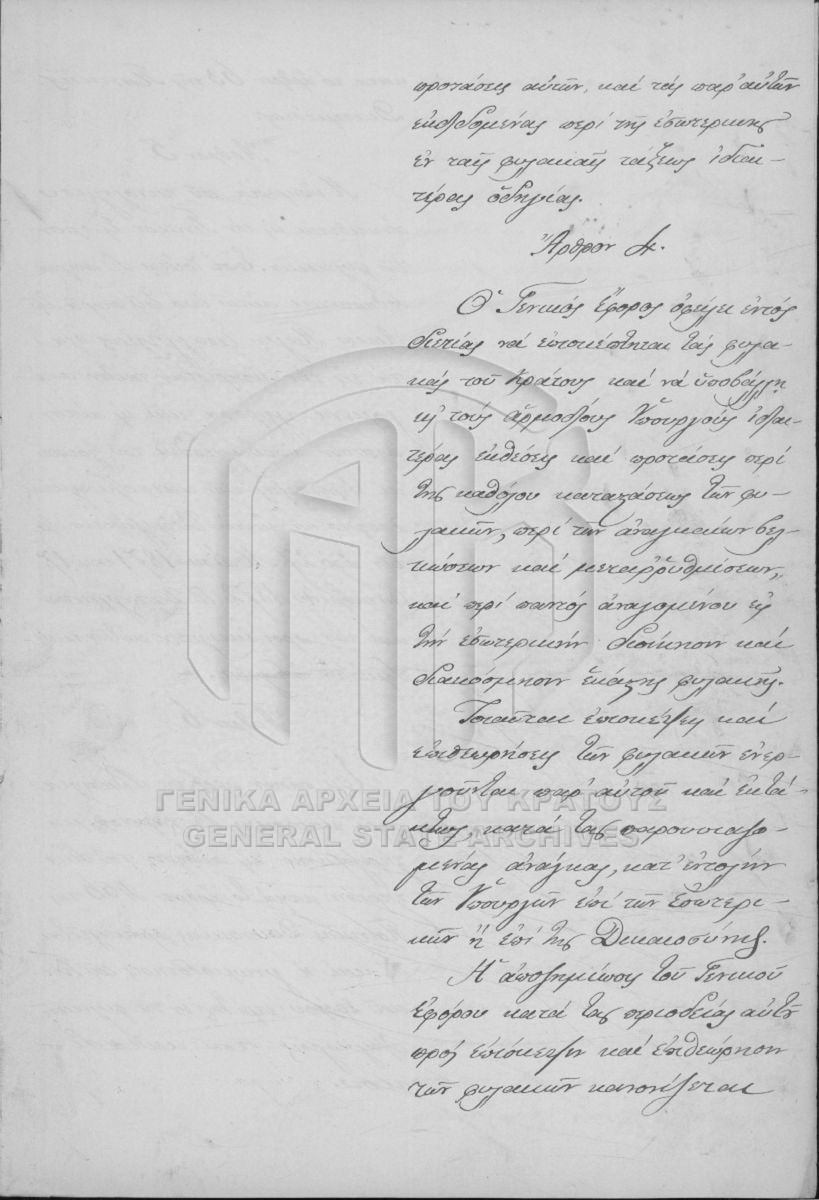 προτάσεις αὐτῶν, καὶ τὰς παρ' αὐτῶν
ἐκδιδομένας περὶ τῆς ἐσωτερικῆς
ἐν ταῖς φυλακαῖς τάξεως ἰδιαι-
τέρας ὁδηγίας.
Ἄρθρον 4.
Ὁ Γενικὸς Ἔφορος ὀφείλει ἐντὸς
διετίας νὰ ἐπισκέπτηται τὰς φυλα-
κὰς τοῦ Κράτους καὶ νὰ ὑποβάλλῃ
εἰς τοὺς ἁρμοδίους Ὑπουργοὺς ἰδιαι-
τέρας ἐκθέσεις καὶ προτάσεις περὶ
τῆς καθόλου καταστάσεως τῶν φυ-
λακῶν, περὶ τῶν ἀναγκαίων βελ-
τιώσεων καὶ μεταῤῥυθμίσεων,
καὶ περὶ παντὸς ἀναγομένου εἰς
τὴν ἐσωτερικὴν διοίκησιν καὶ
διακόσμησιν ἑκάστης φυλακῆς.
Τοιαῦται ἐπισκέψεις καὶ
ἐπιθεωρήσεις τῶν φυλακῶν ἐνερ-
γοῦνται παρ' αὐτοῦ καὶ ἐκτά-
κτως, κατὰ τὰς παρουσιαζο-
μένας ἀνάγκας, κατ' ἐντολὴν
τῶν Ὑπουργῶν ἐπὶ τῶν Ἐσωτερι-
κῶν ἢ ἐπὶ τῆς Δικαιοσύνης.
Ἡ ἀποζημίωσις τοῦ Γενικοῦ
Ἐφόρου κατὰ τὰς περιοδείας αὐτοῦ
πρὸς ἐπίσκεψιν καὶ ἐπιθεώρησιν
τῶν φυλακῶν κανονίζεται
ΓΕΝΙΚΑ ΑΡΧΕΙΑ ΤΟΥ ΚΡΑΤΟΥΣ
GENERAL STATE ARCHIVES